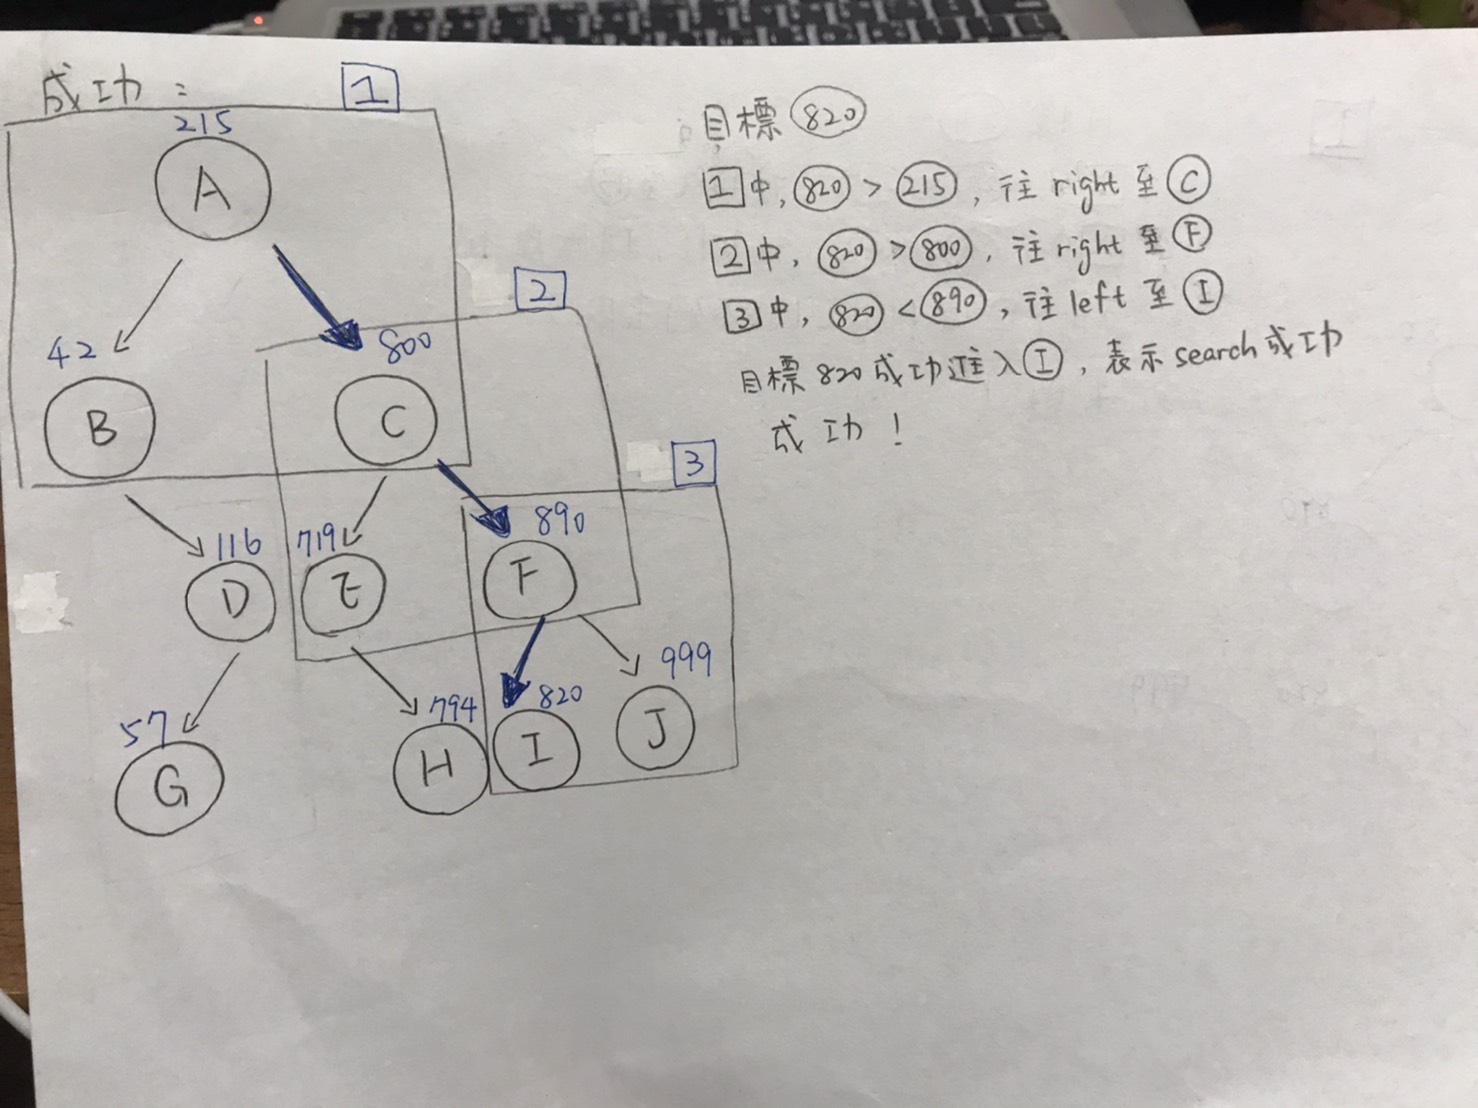 成功：
1
215
A
42
B
800
C
2
116
D
719
E
890
F
3
57
G
794
H
820
I
999
J
目標 820
1中, 820 > 215 , 往 right 至 C
2中, 820 > 800 , 往 right 至 F
3中, 820 < 890 , 往 left 至 I
目標 820 成功進入 I , 表示 search 成功
成功！